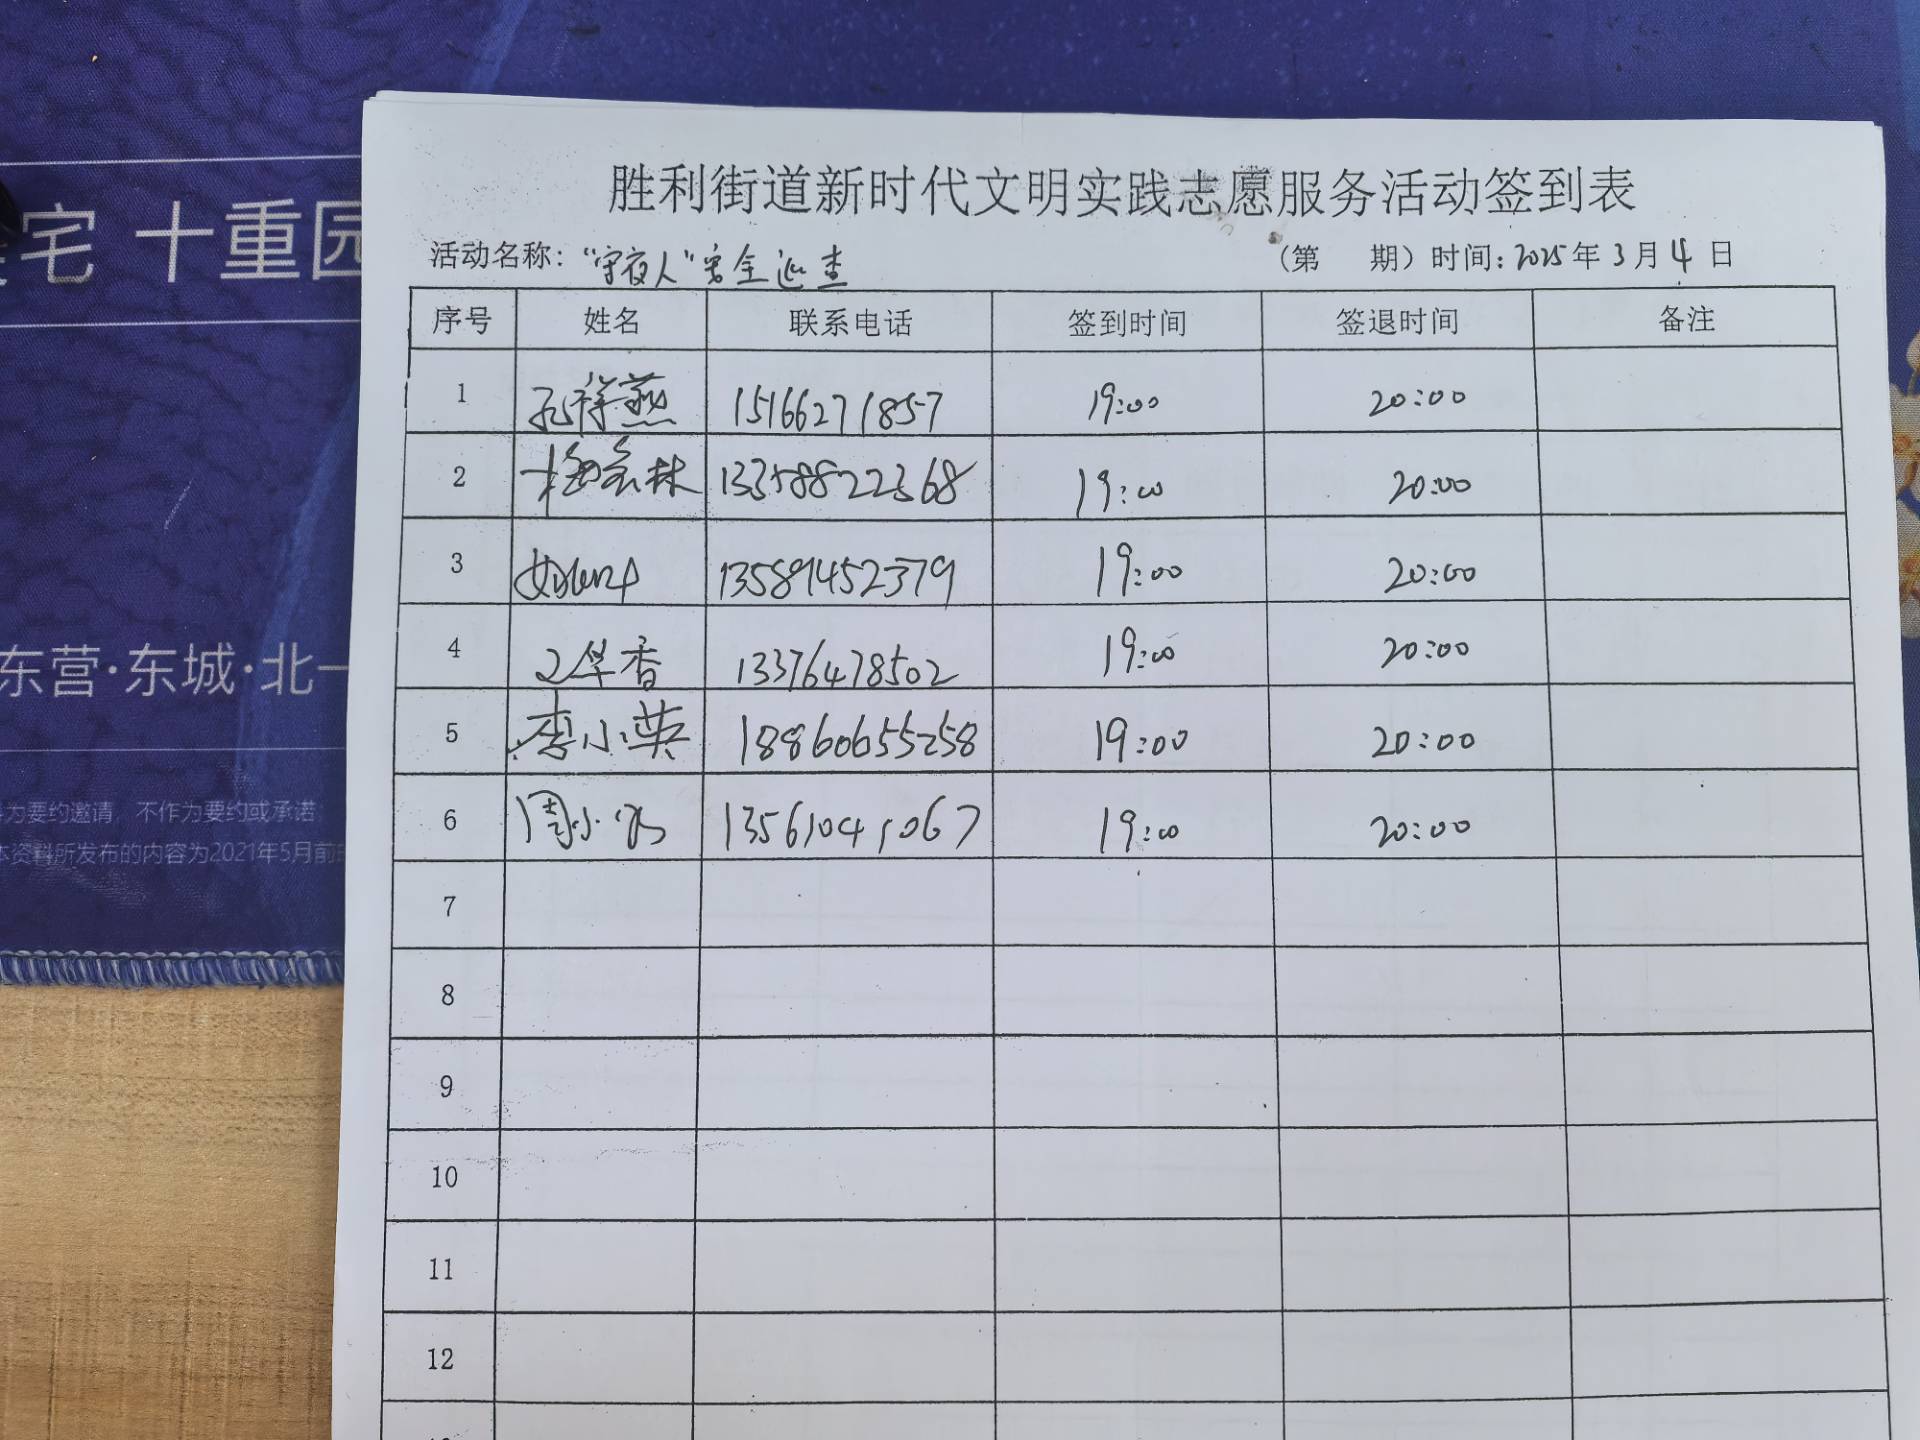 胜利街道新时代文明实践志愿服务活动签到表
活动名称："守夜人"安全巡查 （第 期）时间：2025年3月4日
序号 姓名 联系电话 签到时间 签退时间 备注
1 孔祥燕 15166271857 19:00 20:00
2 梅宗林 13358822368 19:00 20:00
3 13589452379 19:00 20:00
4 华香 13376478502 19:00 20:00
5 李小英 18860655258 19:00 20:00
6 周小 13561041067 19:00 20:00
7
8
9
10
11
12
宅 十重园
东营·东城·北一
为要约邀请，不作为要约或承诺
本资料所发布的内容为2021年5月前